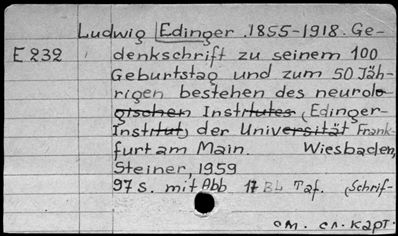 Ludwig Edinger. 1855-1918. Ge-
E 232 denkschrift zu seinem 100
Geburtstag und zum 50 Jäh-
rigen bestehen des neurolo-
gischen Institutes (Edinger-
Institut) der Universität Frank-
furt am Main. Wiesbaden,
Steiner, 1959
97 s. mit Abb 17 Bl. Taf. (Schrif-
см. сл. карт.